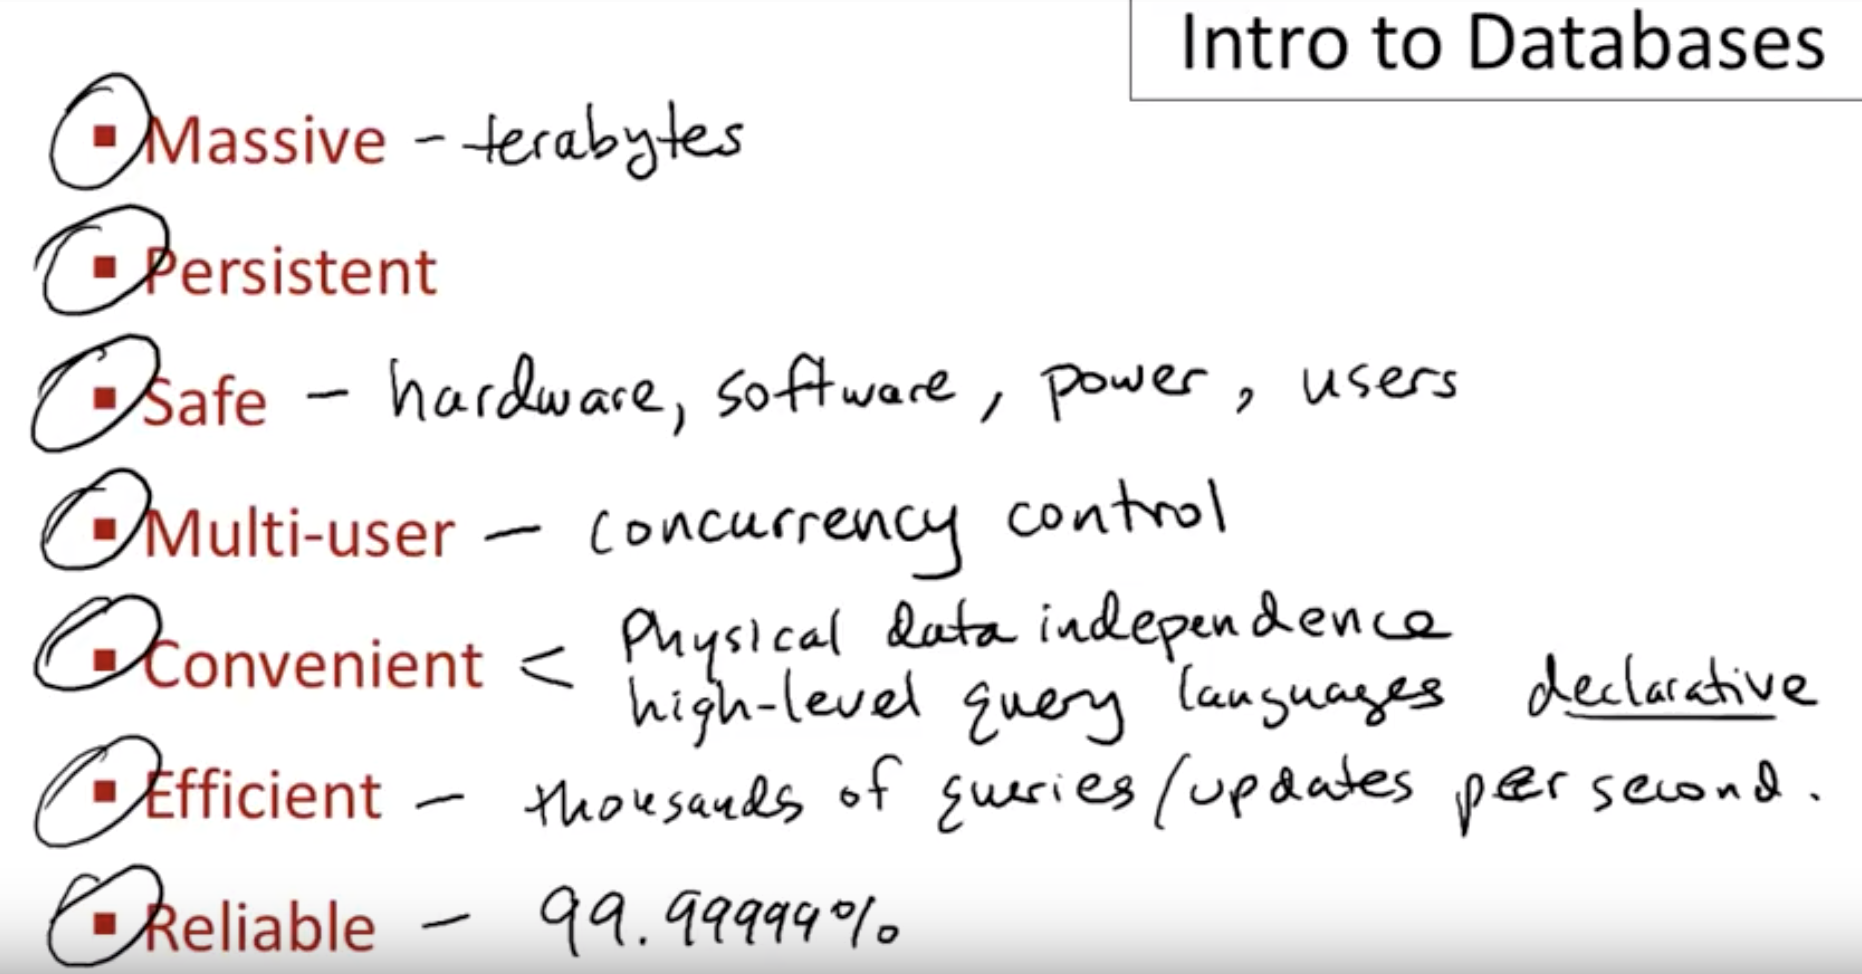 Intro to Databases
Massive - terabytes
Persistent
Safe - hardware, software, power, users
Multi-user - concurrency control
Convenient < Physical data independence
high-level query languages declarative
Efficient - thousands of queries/updates per second.
Reliable - 99.99999%